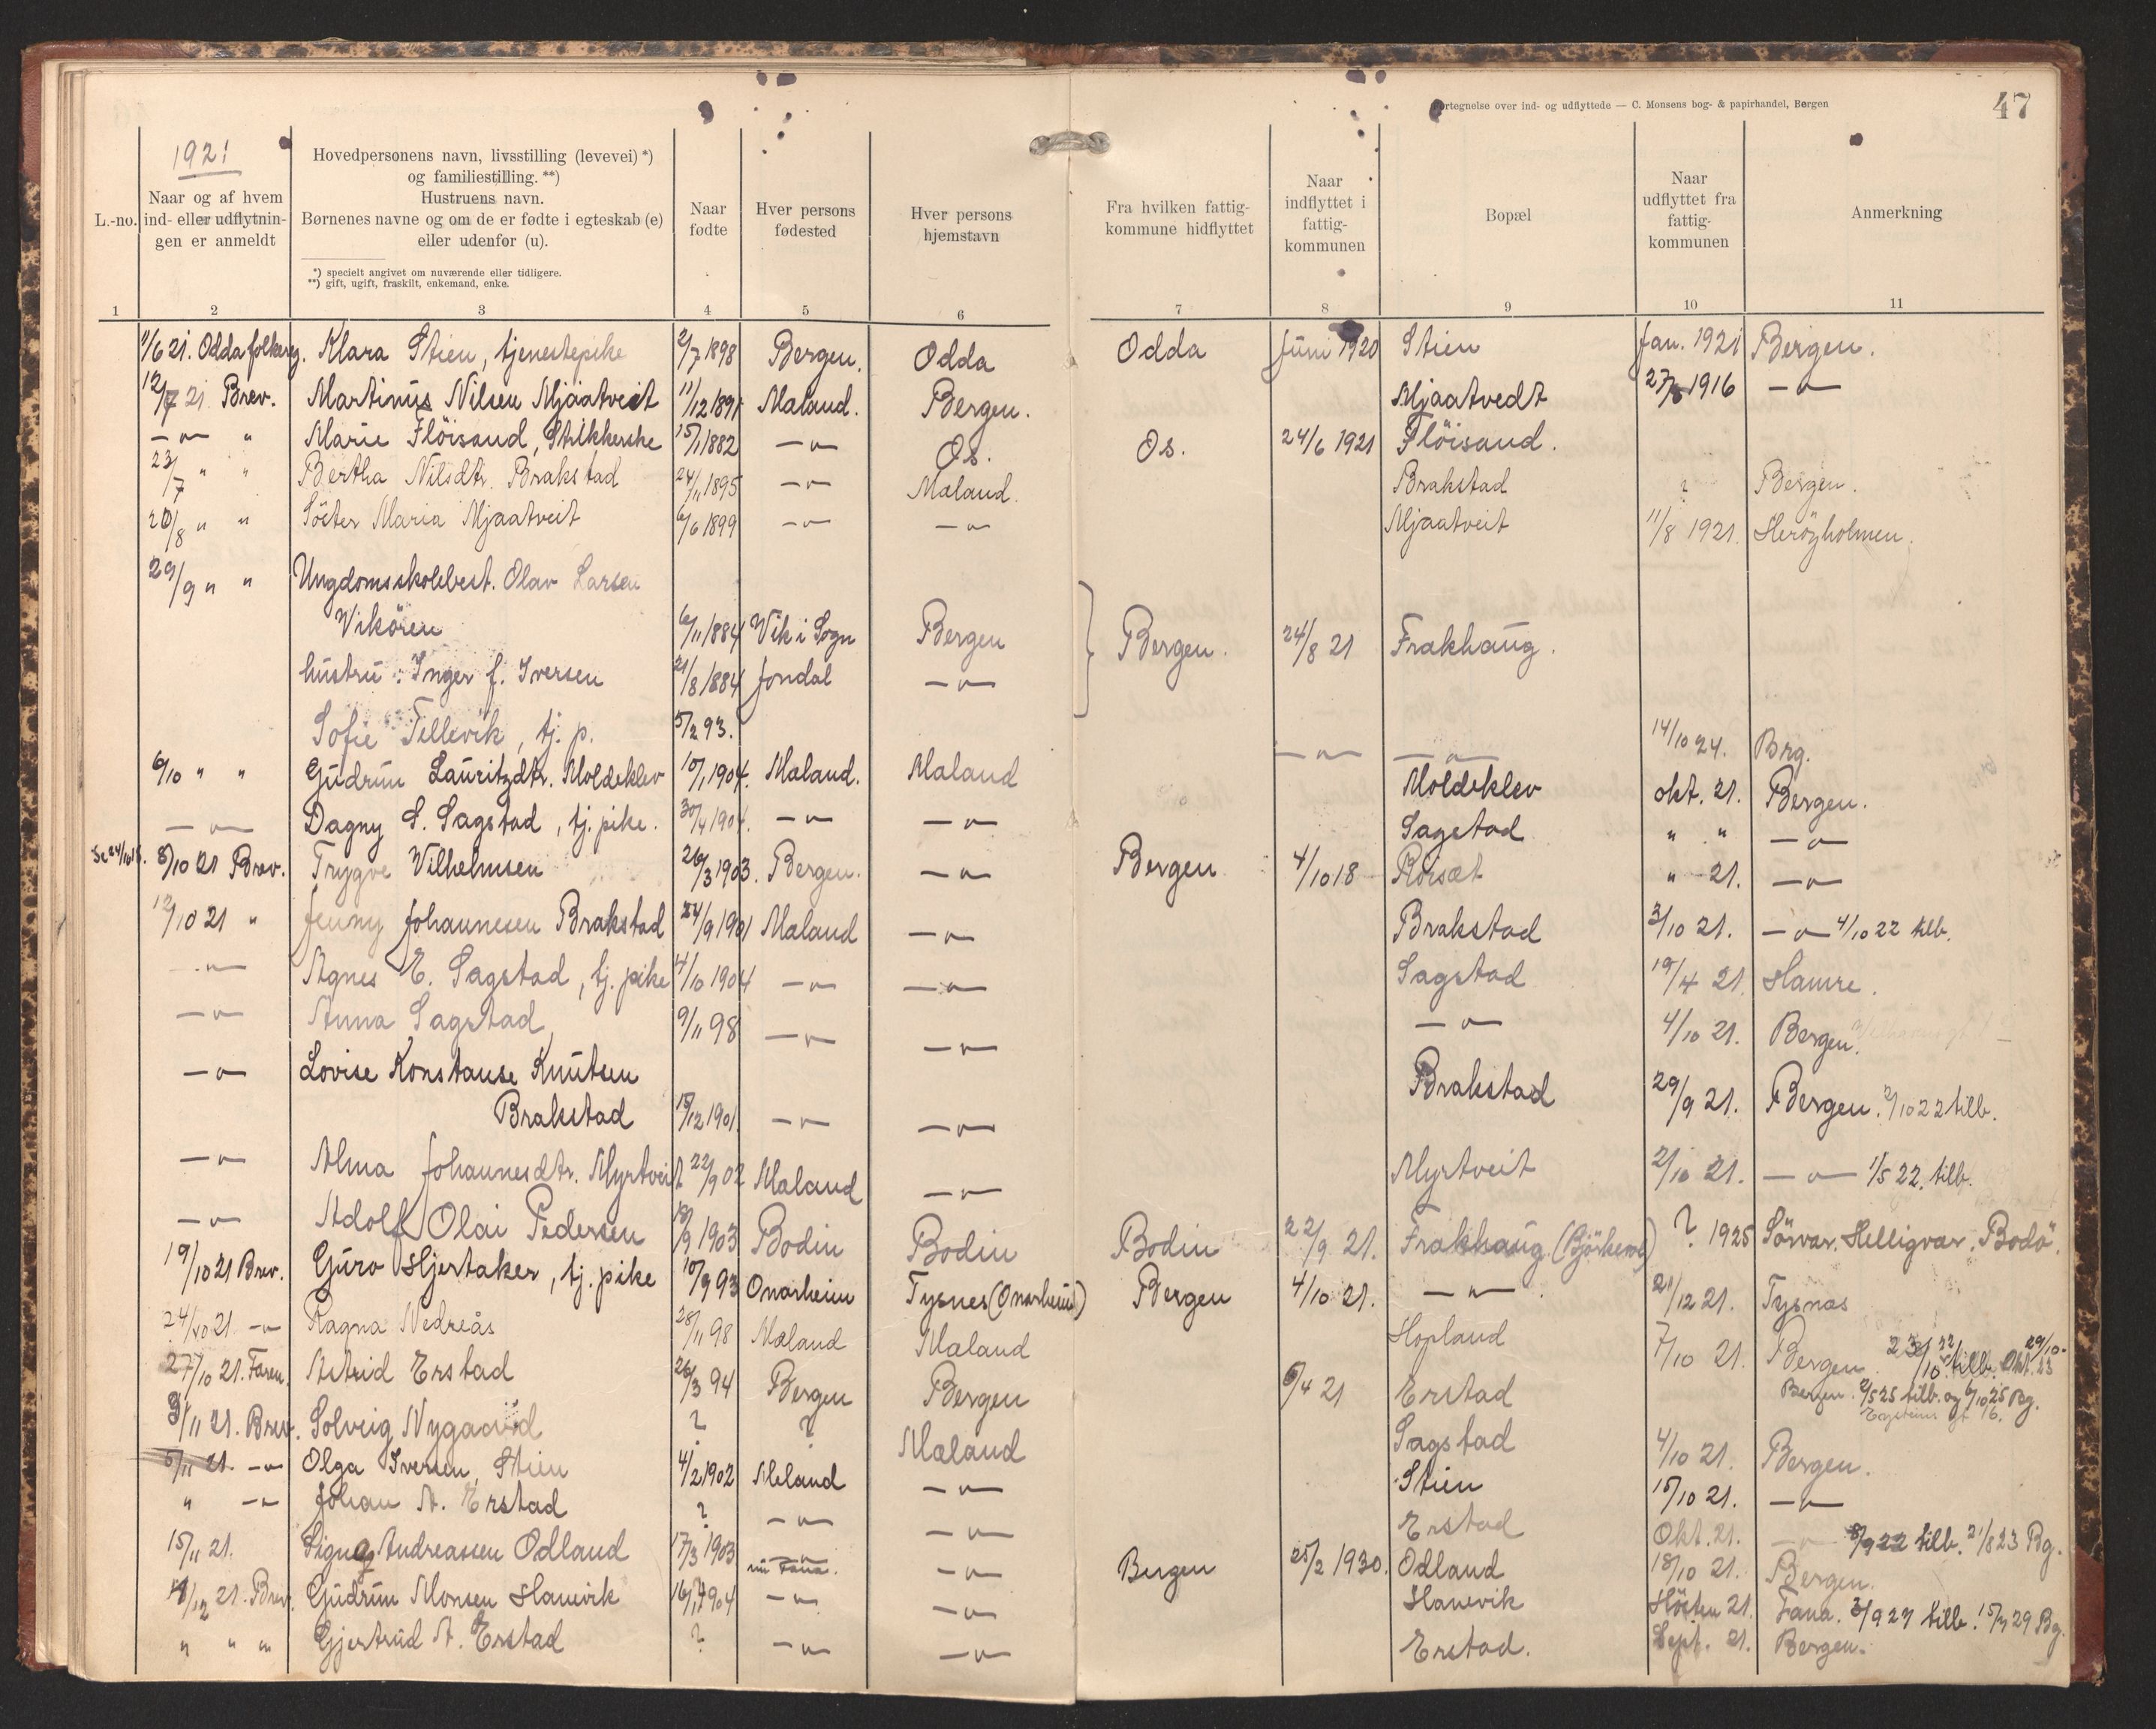 Fortegnelse over ind- og udflyttede — C. Monsens bog- & papirhandel, Bergen
47
1921
L.-no.
Naar og af hvem ind- eller udflytnin-gen er anmeldt
Hovedpersonens navn, livsstilling (levevei) *)
og familiestilling. **)
Hustruens navn.
Børnenes navne og om de er fødte i egteskab (e)
eller udenfor (u).
*) specielt angivet om nuværende eller tidligere.
**) gift, ugift, fraskilt, enkemand, enke.
Naar fødte
Hver persons fødested
Hver persons hjemstavn
Fra hvilken fattig-kommune hidflyttet
Naar indflyttet i fattig-kommunen
Bopæl
Naar udflyttet fra fattig-kommunen
Anmerkning
1 2 3 4 5 6 7 8 9 10 11
1/6 21. Odda folkereg. Klara Stien, tjenestepike 2/7 1898 Bergen. Odda Odda Juni 1920 Stien Jan. 1921 Bergen.
12/7 21. Brev. Martinus Nilsen Mjaatveit 11/12 1891 Maland. Bergen. Mjaatvedt 27/8 1916 —"—
—"— " Marie Flöisand, Strikkerske 15/1 1882 —"— Os. Os. 24/6 1921 Flöisand.
23/7 " " Bertha Nilsdtr. Brakstad 24/11 1895 —"— Maland. Brakstad ? Bergen.
20/8 " " Söster Maria Mjaatveit 6/6 1899 —"— —"— Mjaatveit 11/8 1921. Heröyholmen.
29/9 " " Ungdomsskolebest. Olav Larsen
Vikören 6/11 1884 Vik i Sogn Bergen Bergen. 24/8 21 Frakhaug.
hustru: Inger f. Iversen 21/8 1884 Jondal —"—
Sofie Tellevik, tj. p. 5/2 93. —"— —"— 14/10 24. Brg.
6/10 " " Gudrun Lauritzdtr. Moldeklev 10/1 1904. Maland. Maland Moldeklev okt. 21. Bergen.
—"— Dagny S. Sagstad, tj. pike. 30/4 1904. —"— —"— Sagstad " " —"—
Se 24/10 18. 8/10 21 Brev. Trygve Vilhelmsen 26/3 1903. Bergen. —"— Bergen 4/10 18 Rossæt " 21. —"—
12/10 21 " Jenny Johannesen Brakstad 24/9 1901 Maland —"— Brakstad 3/10 21. —"— 4/10 22 tilb.
—"— Agnes E. Sagstad, tj. pike 4/10 1904 —"— —"— Sagstad 19/4 21. Hamre.
—"— Anna Sagstad 9/11 98 —"— —"— —"— 4/10 21. Bergen.
—"— Lovise Konstanse Knutsen
Brakstad 15/12 1901. —"— —"— Brakstad 29/9 21. Bergen. 2/10 22 tilb.
—"— Alma Johannesdtr. Myrtveit 22/9 02 Maland —"— Myrtveit 2/10 21. —"— 1/5 22. tilb.
—"— Adolf Olai Pedersen 18/9 1903 Bodin Bodin Bodin 22/9 21. Frakhaug. ? 1925 Sörvar. Helligvær. Bodö.
19/10 21 Brev. Guro Hjertaker, tj. pike 10/9 93 Onarheim Tysnes (Onarheim) Bergen 4/10 21. —"— 21/12 21. Tysnas
24/10 21 —"— Ragna Nedreås 28/11 98 Maland Maland Hopland 7/10 21. Bergen. tilb. Okt. 23 29/10.
27/10 21. Faren. Astrid Erstad 26/3 94 Bergen Bergen 6/4 21 Erstad Bergen. 2/5 25 tilb. og 6/10 25 Bg.
3/11 21. Brev. Solveig Nygaard ? ? Maland Sagstad 4/10 21. Bergen.
5/11 21. —"— Olga Iversen Stien 4/2 1902 Meland —"— Stien 15/10 21. —"—
" —"— Johan A. Erstad ? —"— —"— Erstad Okt. 21. —"— 8/9 22 tilb. 21/8 23 Bg.
15/11 21. Signe Andreassen Odland 17/3 1903 —"— nu Fana. —"— Bergen 25/2 1930. Odland 18/10 21. Bergen.
4/12 21. Brev. Gudrun Monsen Hanevik 16/1 1904 —"— —"— Hanevik Hösten 21. Fana. 3/9 27 tilb. 15/7 29 Bg.
" " " Gjertrud A. Erstad ? —"— —"— Erstad. Sept. 21. Bergen.